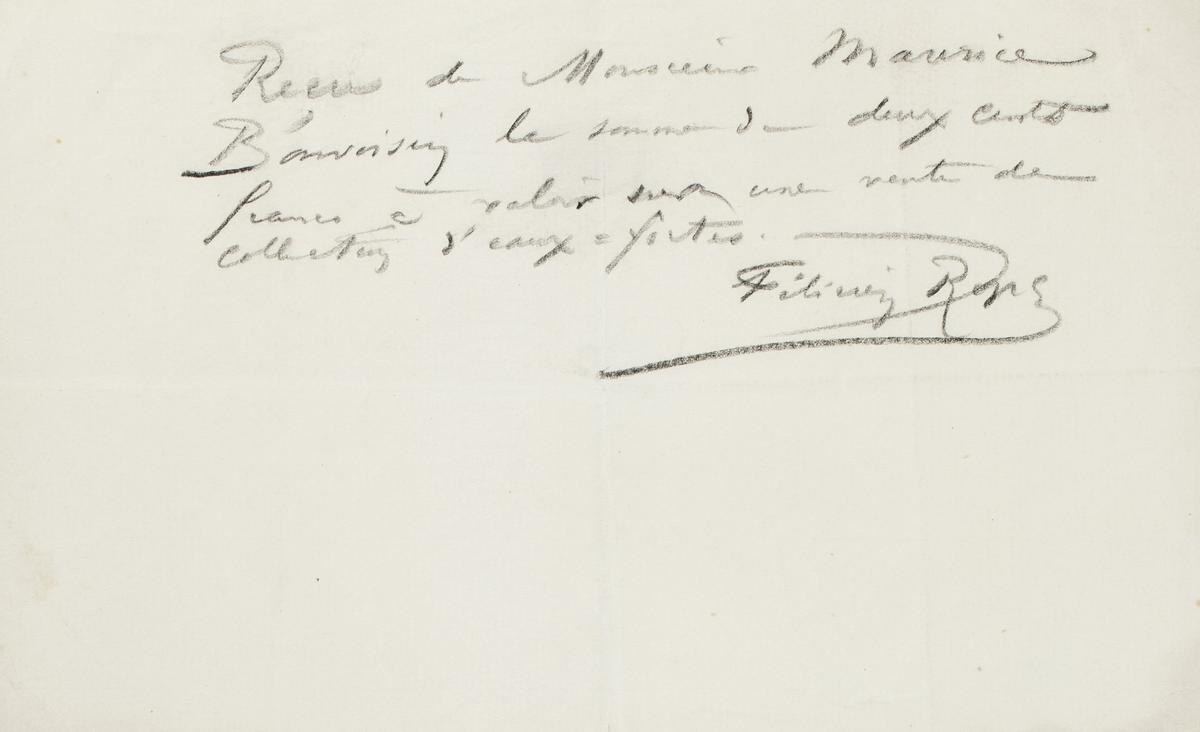 Reçu de Monsieur Maurice
Bonvoisin la somme de deux cents
francs à valoir sur une vente de
collection d'eaux=fortes.
Félicien Rops